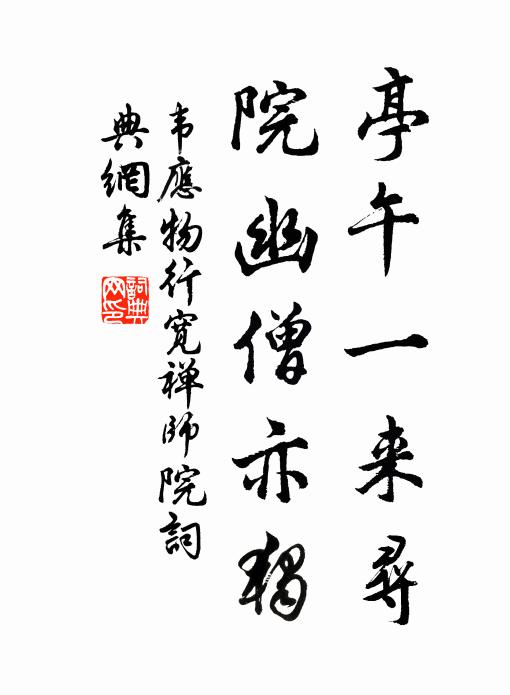 亭午一来尋
院幽僧亦獨
韦應物行寬禅師院詞
典網集
詞典网印